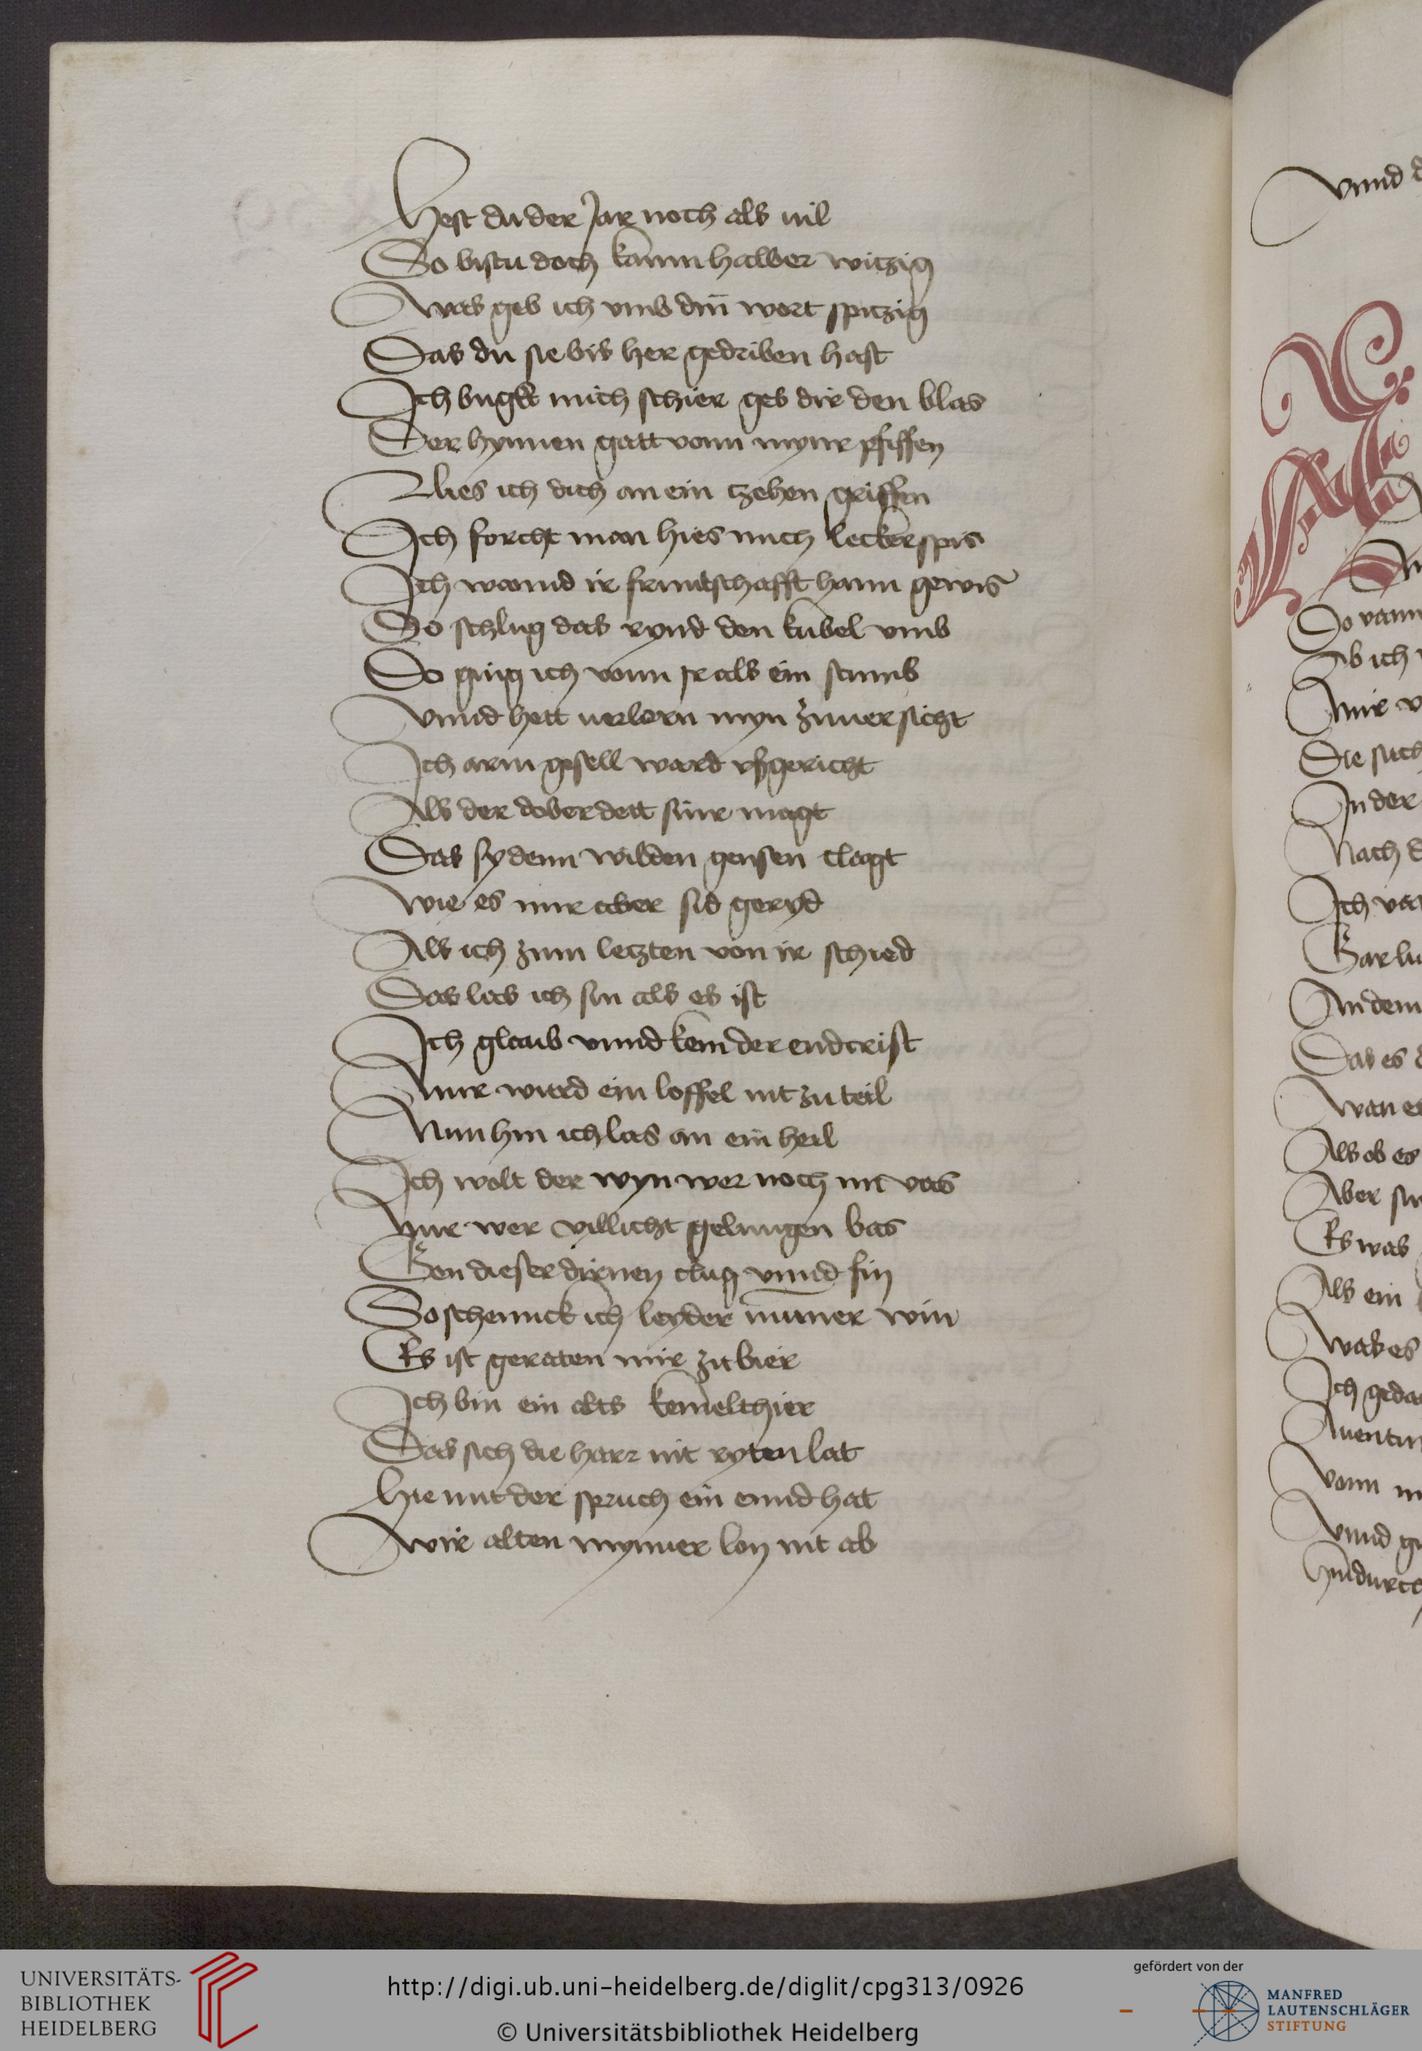 Hest du der Jar noch als uil
So bistu doch kaum halber witzig
Was geb ich vmb din wort spitzig
Das du sie bis her gedriben hast
Ich bugkt mich schier geb dir den blas
Der hynnen gatt vonn mynr pfiffen
Lies ich dich an ein zehen griffen
Ich forcht man hies mich leckerspis
Ich waand ir fruntschafft hann gewis
So schlug das rynd den kubel vmb
Do ging ich vonn ir als ein stumb
Vnnd hett uerlorn myn zuuersicht
Ich arm gesell ward vfgericht
Als der dober dett sinr magt
Das sy denn wilden gensen clagt
Wie es mir aber sid geryd
Als ich zum letzten von ir schied
Das las ich sin als es ist
Ich glaub vnnd kem der endcrist
Mir wurd ein loffel nit zu teil
Nun hin ich las an ein heil
Ich wolt der wyn wer noch im vas
Mir wer villicht gelungen bas
Gen dieser dirnen clug vnnd fin
So schennck ich leyder nimer win
Es ist geraten mir zu bier
Ich bin ein alts kemelthier
Das sich die harr nit ryten lat
Hie mit der spruch ein ennd hat
Wir alten mynner lon nit ab
Vnnd
So vann
Ab ich
Mir
Die such
In der
Nach
Ich
Gar
An dem
Das es
Wan es
Als ob es
Aber
Es was
Als ein
Was es
Ich
Vonn
Vnnd
UNIVERSITÄTS-
BIBLIOTHEK
HEIDELBERG
http://digi.ub.uni-heidelberg.de/diglit/cpg313/0926
© Universitätsbibliothek Heidelberg
gefördert von der
MANFRED
LAUTENSCHLÄGER
STIFTUNG